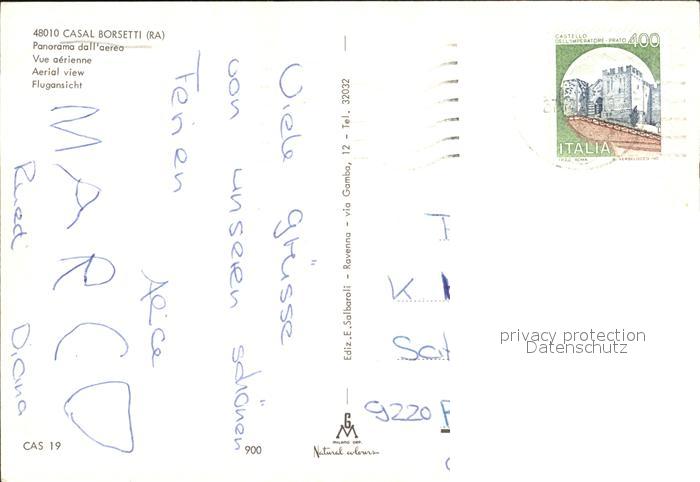 48010 CASAL BORSETTI (RA)
Panorama dall'aerea
Vue aérienne
Aerial view
Flugansicht
Viele Grüsse
von unseren schönen
Ferien
Alice
MARCO
Ruedi Diana
CAS 19
900
Ediz. E. Salbaroli - Ravenna - via Gamba, 12 - Tel. 32032
MILANO DEP.
Natural colours
CASTELLO
DELL'IMPERATORE - PRATO 400
ITALIA
K
9220
privacy protection
Datenschutz